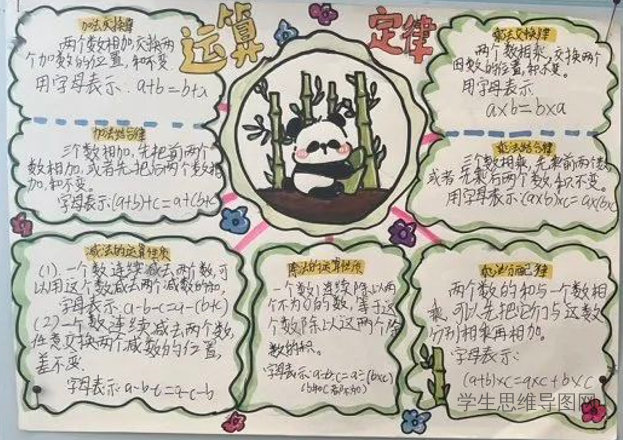 运算
定律
加法交换律
两个数相加,交换两
个加数的位置,和不变。
用字母表示:a+b=b+a
加法结合律
三个数相加,先把前两个
数相加,或者先把后两个数相
加,和不变。
字母表示:(a+b)+c=a+(b+c
乘法交换律
两个数相乘,交换两个
因数的位置,积不变。
用字母表示:
a×b=b×a
乘法结合律
三个数相乘,先乘前两个数
或者先乘后两个数,积不变。
用字母表示:(a×b)×c=a×(b×c
减法的运算性质
(1).一个数连续减去两个数,可
以用这个数减去两个减数的和.
字母表示:a-b-c=a-(b+c)
(2)一个数连续减去两个数,
任意交换两个减数的位置,
差不变.
字母表示:a-b-c=a-c-b
除法的运算性质
一个数连续除以两
个不为0的数,等于这
个数除以这两个除
数的积。
字母表示:a÷b÷c=a÷(b×c)
(b和c都不为0)
乘法分配律
两个数的和与一个数相
乘,可以先把它们与这数
分别相乘再相加。
字母表示:
(a+b)×c=a×c+b×c
学生思维导图网